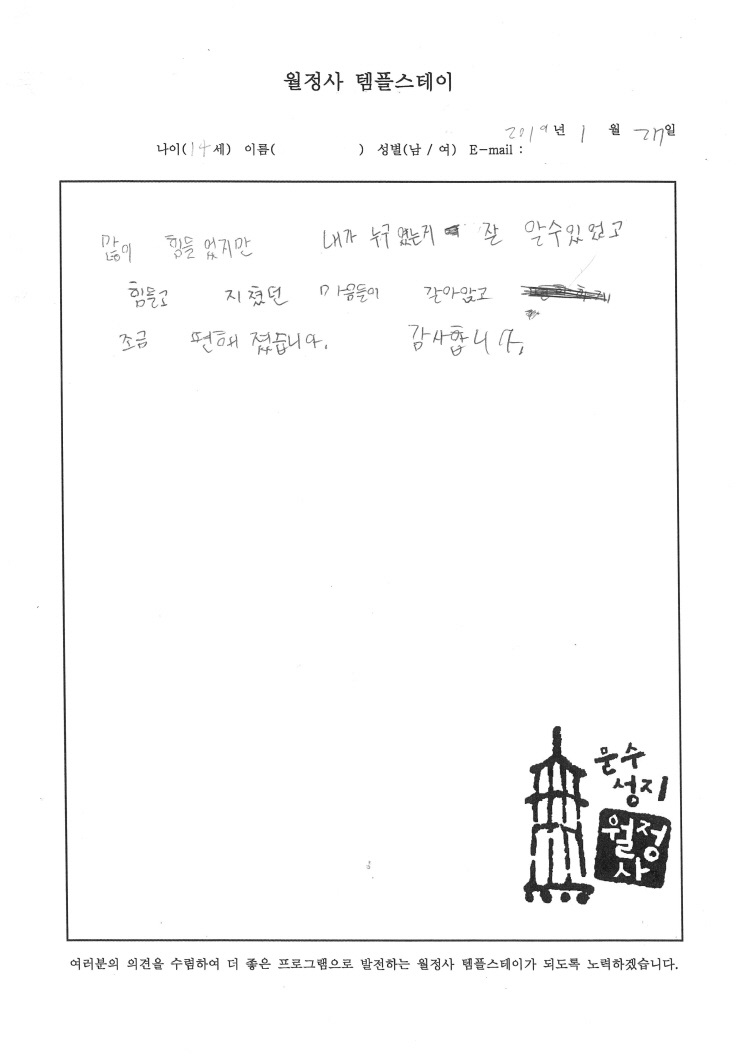 월정사 템플스테이
2019년 1월 27일
나이(14세) 이름( ) 성별(남 / 여) E-mail :
많이 힘들었지만 내가 누구였는지 잘 알수있었고
힘들고 지쳤던 마음들이 갈아앉고
조금 편해졌습니다. 감사합니다.
문수
성지
월정
사
여러분의 의견을 수렴하여 더 좋은 프로그램으로 발전하는 월정사 템플스테이가 되도록 노력하겠습니다.